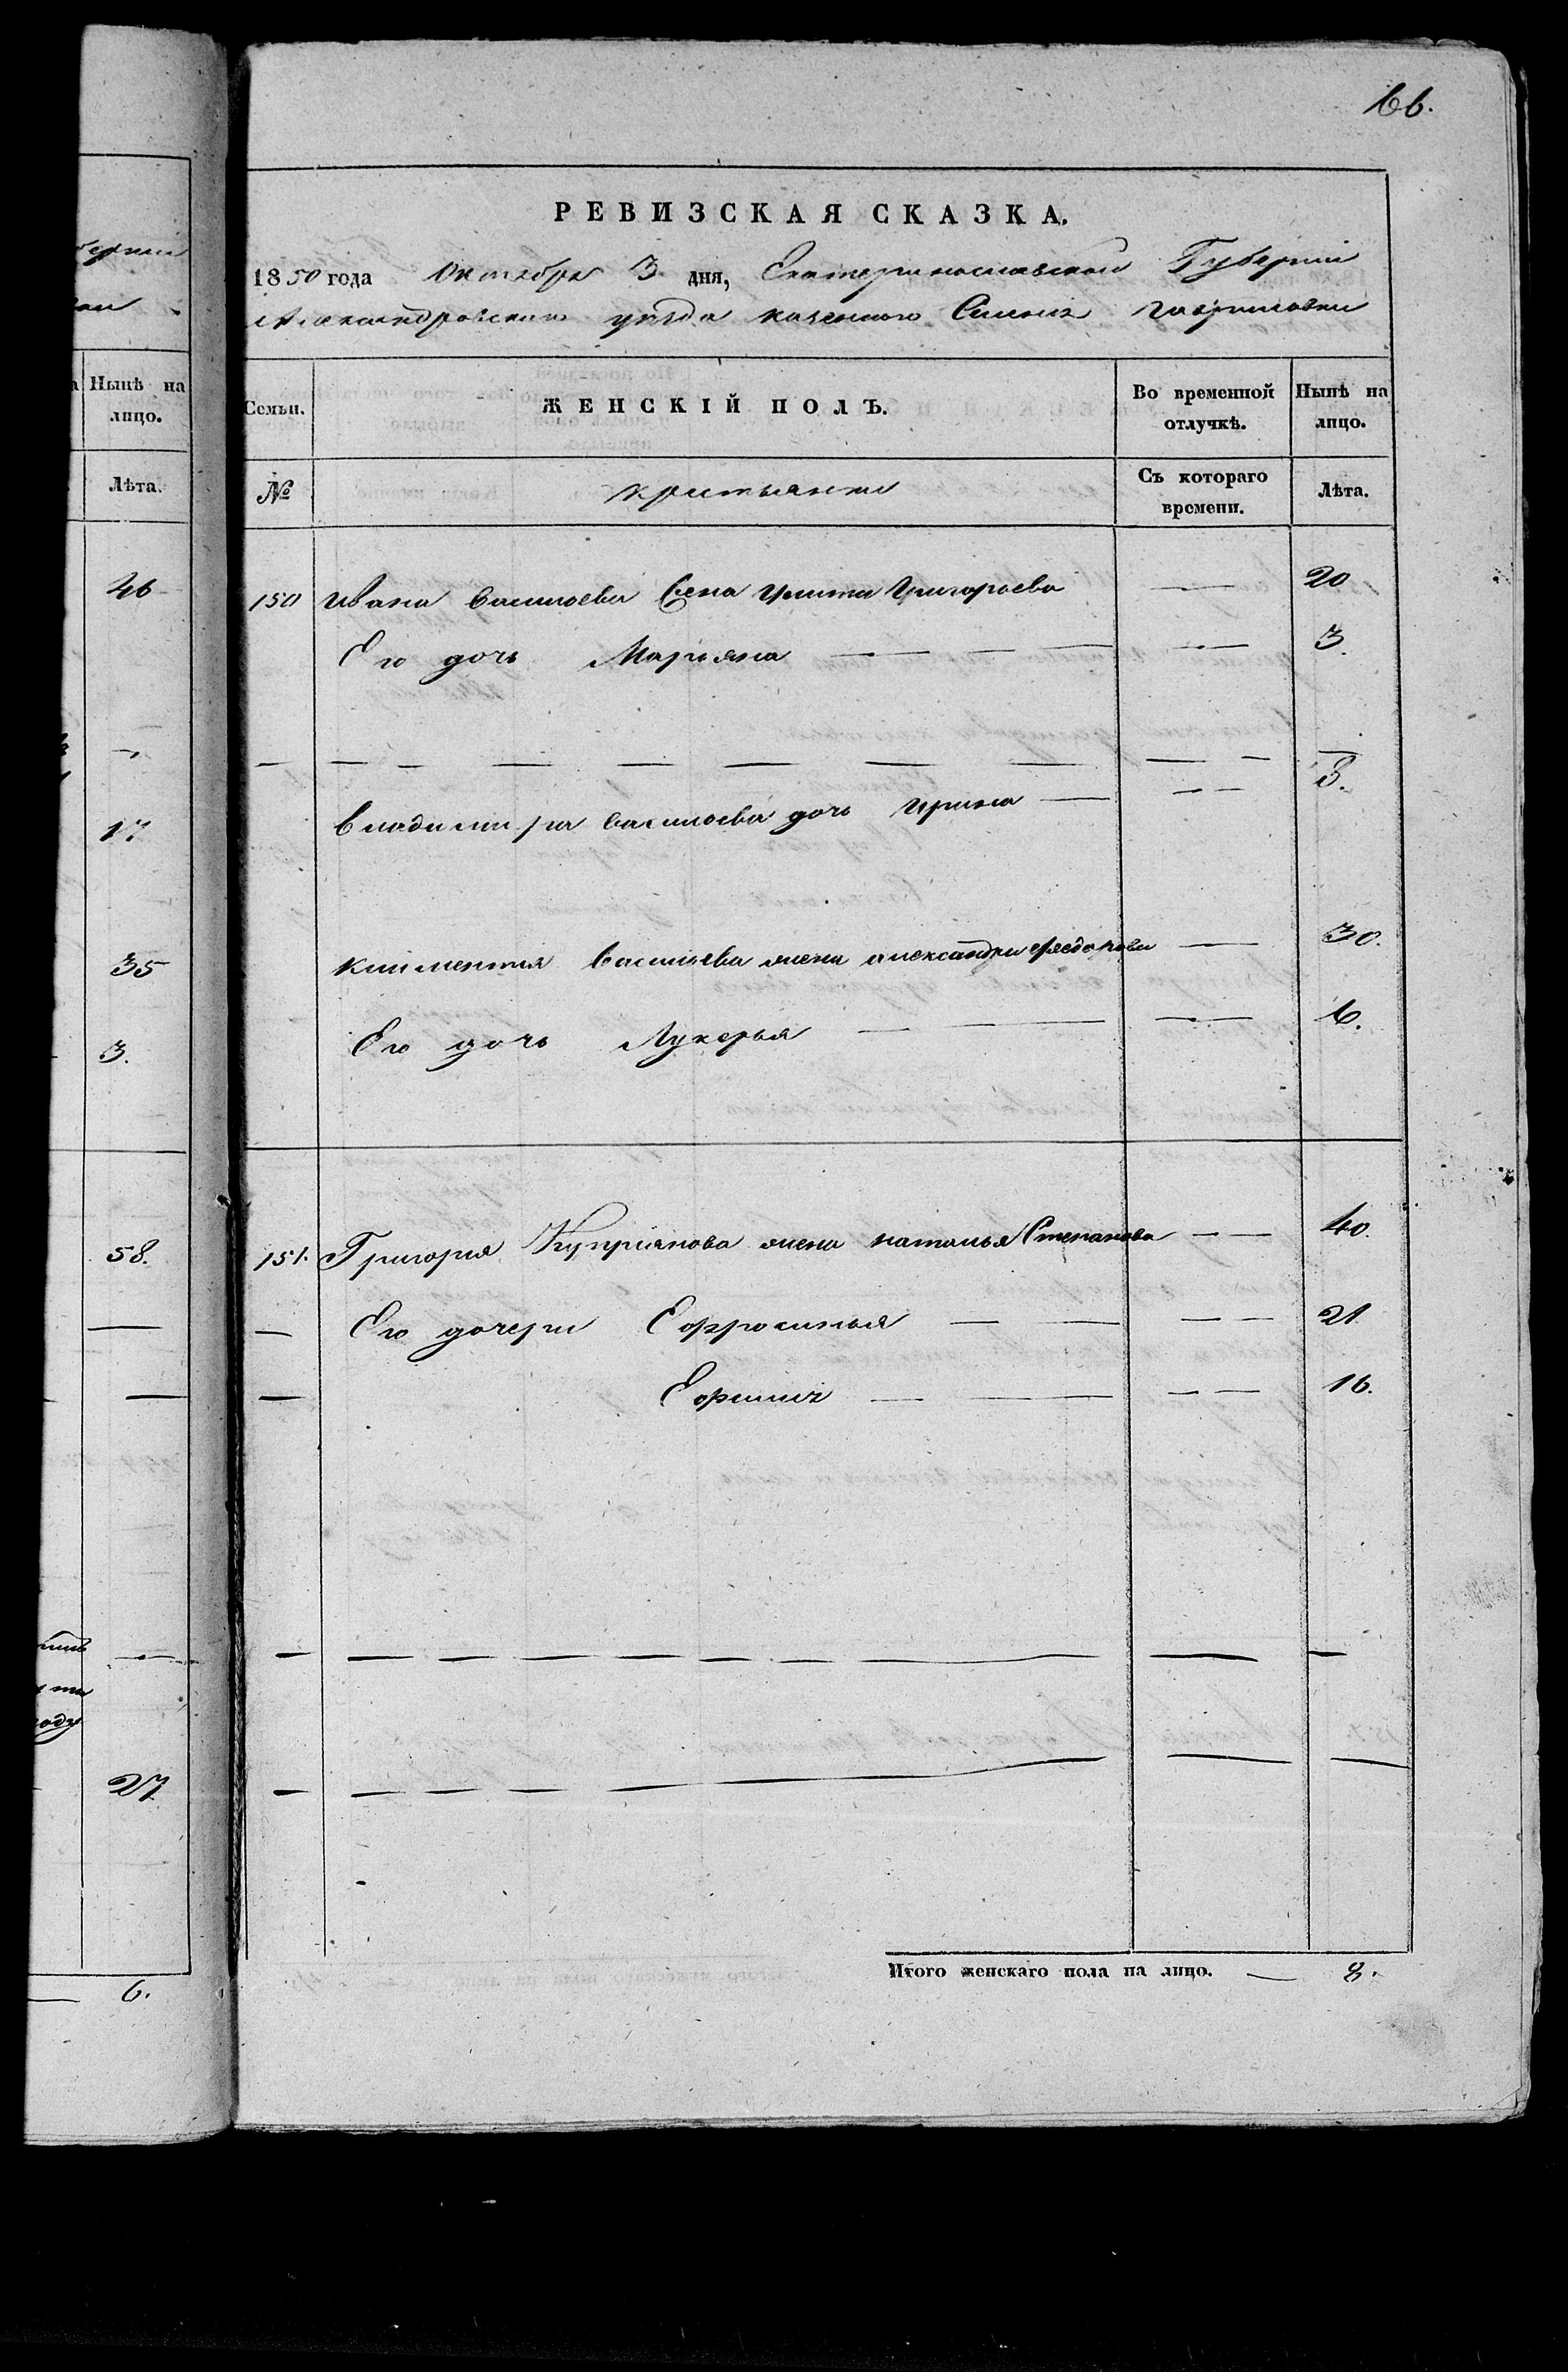 66.
РЕВИЗСКАЯ СКАЗКА.
1850 года Октября 3 дня, Екатеринославской Губернии
Александровскаго уезда казенного Селения Гавриловки
Семьи. ЖЕНСКІЙ ПОЛЪ. Во временной отлучкѣ. Нынѣ на лицо.
№ крестьянки Съ котораго времени. Лѣта.
150 Ивана Васильева Григорьева 20
Его дочь Марьяна 3.
Владимира Васильева дочь Ирина 8.
Климентия Васильева жена александра Федорова 30.
Его дочь Лукерья 6.
151. Григория Куприянова жена наталья Степанова 40.
Его дочери Ефросинья 21.
16.
Итого женскаго пола на лицо. 8.
Нынѣ на лицо.
Лѣта.
46
17
35
3.
58.
оду
27.
6.